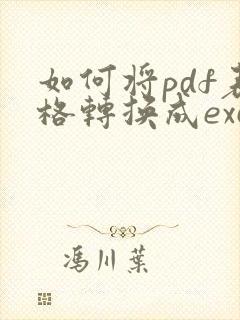 如何將pdf表
格轉換成exc
馮川葉